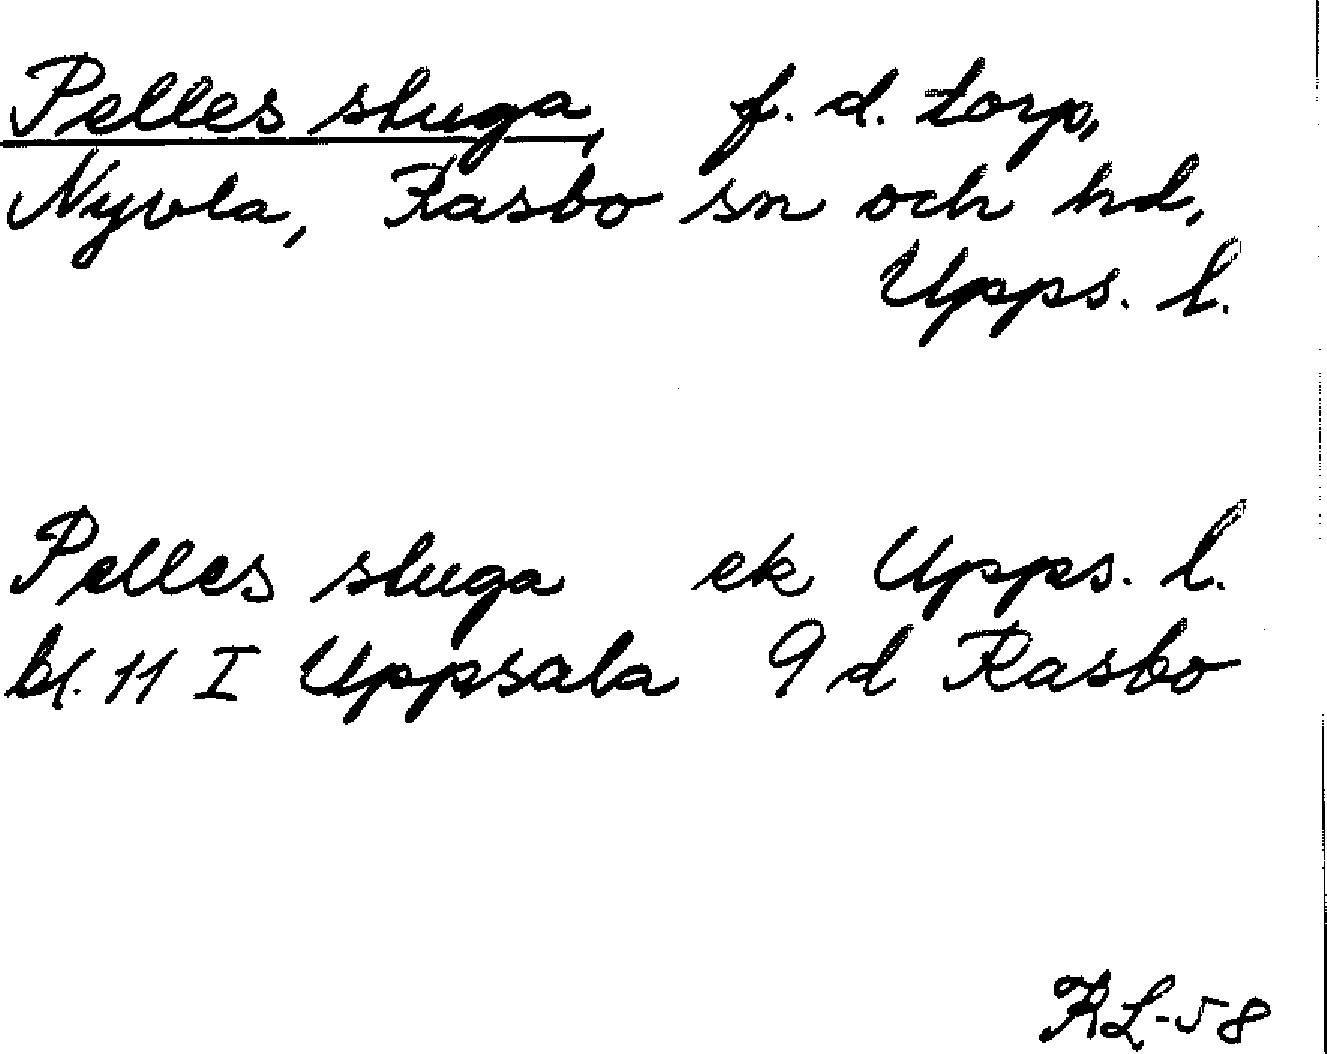 Pelles stuga, f. d. torp,
Nyvla, Rasbo sn och hd,
Upps. l.
Pelles stuga ek Upps. l.
bl. 11 I Uppsala 9 d Rasbo
RL-58